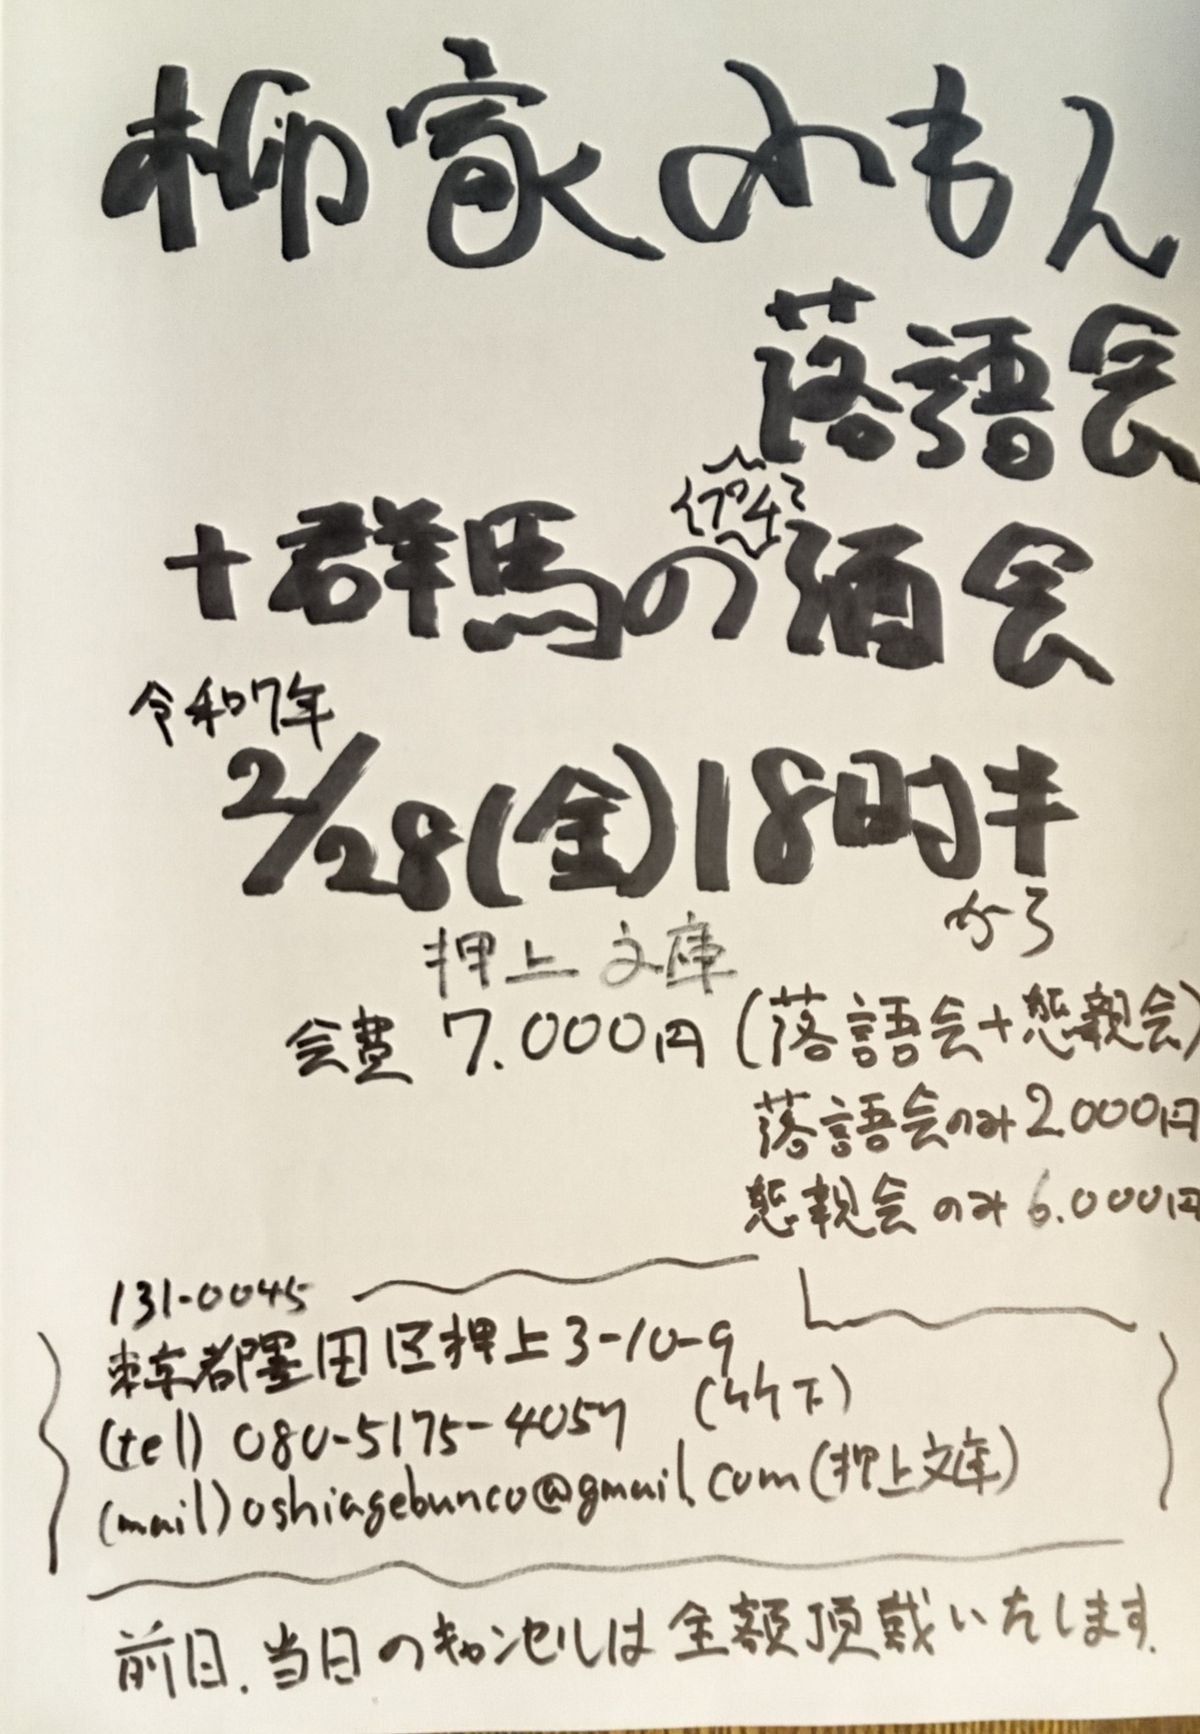 柳家小もん
落語会
+群馬の酒会
プチ
令和7年
2/28(金)18時半
から
押上文庫
会費 7.000円(落語会+懇親会)
落語会のみ2.000円
懇親会のみ6.000円
131-0045
東京都墨田区押上3-10-9
(tel) 080-5175-4057 (竹下)
(mail)oshiagebunco@gmail.com(押上文庫)
前日.当日のキャンセルは全額頂戴いたします.